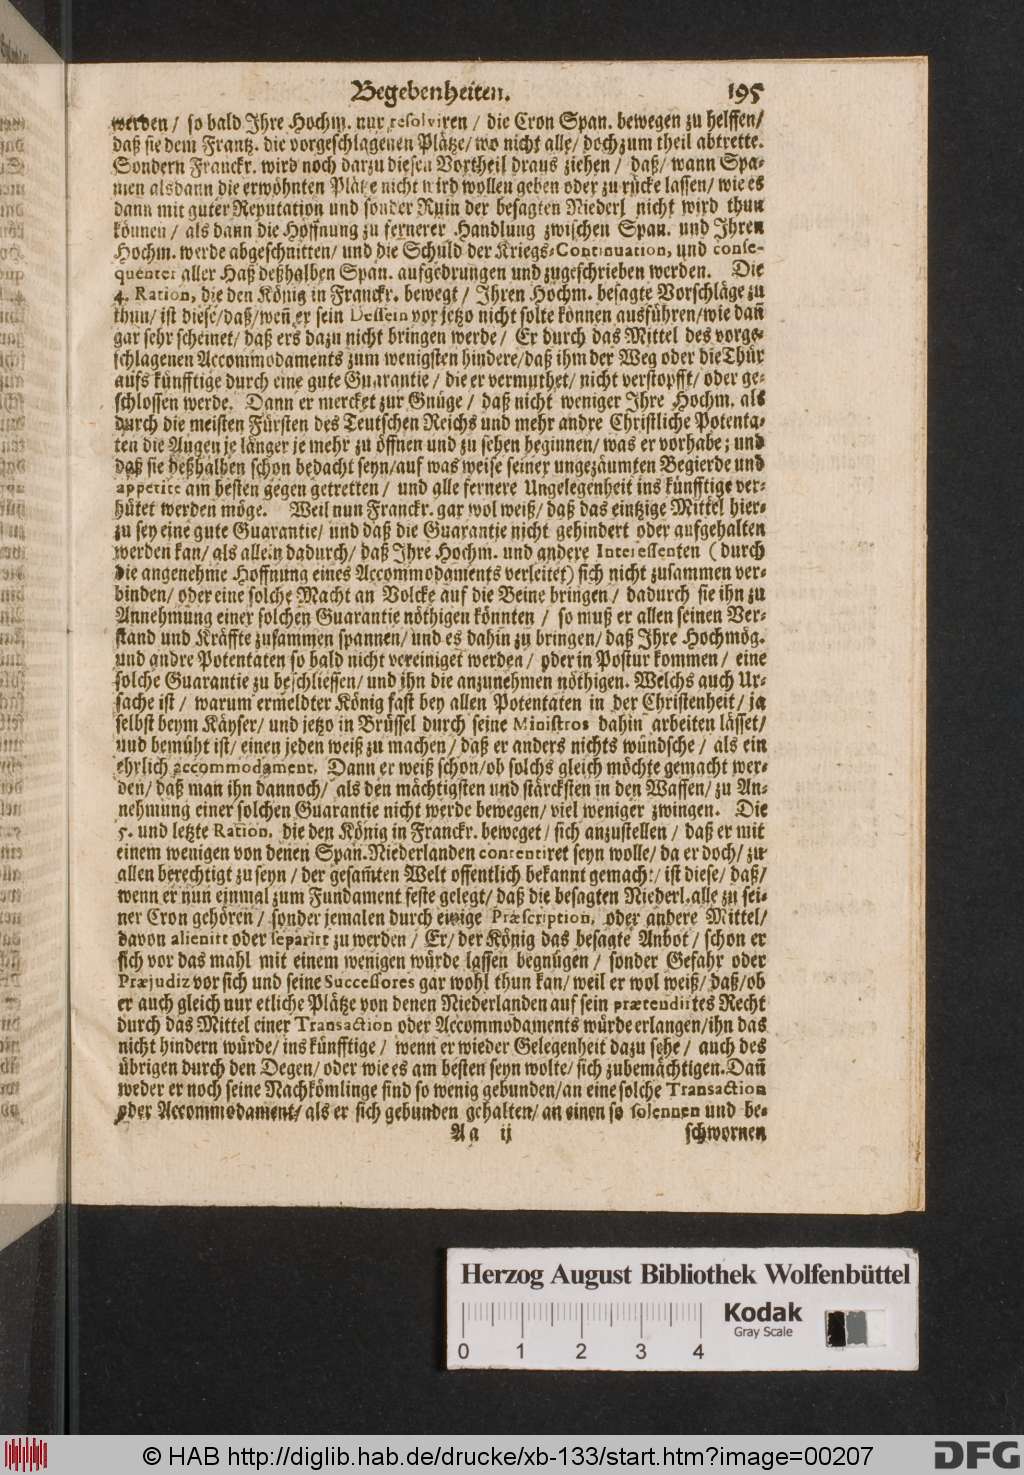 Begebenheiten. 195
werden / so bald Ihre Hochm. nur resolviren / die Cron Span. bewegen zu helffen /
daß sie dem Frantz. die vorgeschlagenen Plätze / wo nicht alle / doch zum theil abtrette.
Sondern Franckr. wird noch darzu diesen Vortheil draus ziehen / daß / wann Spa-
nien alsdann die erwöhnten Plätze nicht wird wollen geben oder zu rücke lassen / wie es
dann mit guter Reputation und sonder Ruin der besagten Niederl. nicht wird thun
können / als dann die Hoffnung zu fernerer Handlung zwischen Span. und Ihren
Hochm. werde abgeschnitten / und die Schuld der Kriegs-Continuation, und conse-
quenter aller Haß deßhalben Span. aufgedrungen und zugeschrieben werden. Die
4. Ration, die den König in Franckr. bewegt / Ihren Hochm. besagte Vorschläge zu
thun / ist diese / daß / weñ er sein Dessein vor jetzo nicht solte können ausführen / wie dañ
gar sehr scheinet / daß ers dazu nicht bringen werde / Er durch das Mittel des vorge-
schlagenen Accommodaments zum wenigsten hindere / daß ihm der Weg oder die Thür
aufs künfftige durch eine gute Guarantie / die er vermuthet / nicht verstopfft / oder ge-
schlossen werde. Dann er mercket zur Gnüge / daß nicht weniger Ihre Hochm. als
durch die meisten Fürsten des Teutschen Reichs und mehr andre Christliche Potenta-
ten die Augen je länger je mehr zu öffnen und zu sehen beginnen / was er vorhabe; und
daß sie deßhalben schon bedacht seyn / auf was weise seiner ungezäumten Begierde und
appetite am besten gegen getretten / und alle fernere Ungelegenheit ins künfftige ver-
hütet werden möge. Weil nun Franckr. gar wol weiß / daß das eintzige Mittel hier-
zu sey eine gute Guarantie / und daß die Guarantie nicht gehindert oder aufgehalten
werden kan / als allein dadurch / daß Ihre Hochm. und andere Interessenten (durch
die angenehme Hoffnung eines Accommodaments verleitet) sich nicht zusammen ver-
binden / oder eine solche Macht an Volcke auf die Beine bringen / dadurch sie ihn zu
Annehmung einer solchen Guarantie nöthigen könnten / so muß er allen seinen Ver-
stand und Kräffte zusammen spannen / und es dahin zu bringen / daß Ihre Hochmög.
und andre Potentaten so bald nicht vereiniget werden / oder in Postur kommen / eine
solche Guarantie zu beschliessen / und ihn die anzunehmen nöthigen. Welchs auch Ur-
sache ist / warum ermeldter König fast bey allen Potentaten in der Christenheit / ja
selbst beym Käyser / und jetzo in Brüssel durch seine Ministros dahin arbeiten lässet /
und bemüht ist / einen jeden weiß zu machen / daß er anders nichts wündsche / als ein
ehrlich accommodament. Dann er weiß schon / ob solchs gleich möchte gemacht wer-
den / daß man ihn dannoch / als den mächtigsten und stärcksten in den Waffen / zu An-
nehmung einer solchen Guarantie nicht werde bewegen / viel weniger zwingen. Die
5. und letzte Ration, die den König in Franckr. beweget / sich anzustellen / daß er mit
einem wenigen von denen Span. Niederlanden contentiret seyn wolle / da er doch / zu
allen berechtigt zu seyn / der gesam̃ten Welt offentlich bekannt gemacht / ist diese / daß /
wenn er nun einmal zum Fundament feste gelegt / daß die besagten Niederl. alle zu sei-
ner Cron gehören / sonder jemalen durch einige Præscription, oder andere Mittel /
davon alienirt oder separirt zu werden / Er / der König das besagte Anbot / schon er
sich vor das mahl mit einem wenigen würde lassen begnügen / sonder Gefahr oder
Præjudiz vor sich und seine Successores gar wohl thun kan / weil er wol weiß / daß / ob
er auch gleich nur etliche Plätze von denen Niederlanden auf sein prætendirtes Recht
durch das Mittel einer Transaction oder Accommodaments würde erlangen / ihn das
nicht hindern würde / ins künfftige / wenn er wieder Gelegenheit dazu sehe / auch des
übrigen durch den Degen / oder wie es am besten seyn wolte / sich zubemächtigen. Dañ
weder er noch seine Nachkömlinge sind so wenig gebunden / an eine solche Transaction
oder Accommodament / als er sich gebunden gehalten / an einen so solennen und be-
Aa ij schwornen
Herzog August Bibliothek Wolfenbüttel
Kodak
Gray Scale
0 1 2 3 4
© HAB http://diglib.hab.de/drucke/xb-133/start.htm?image=00207
DFG